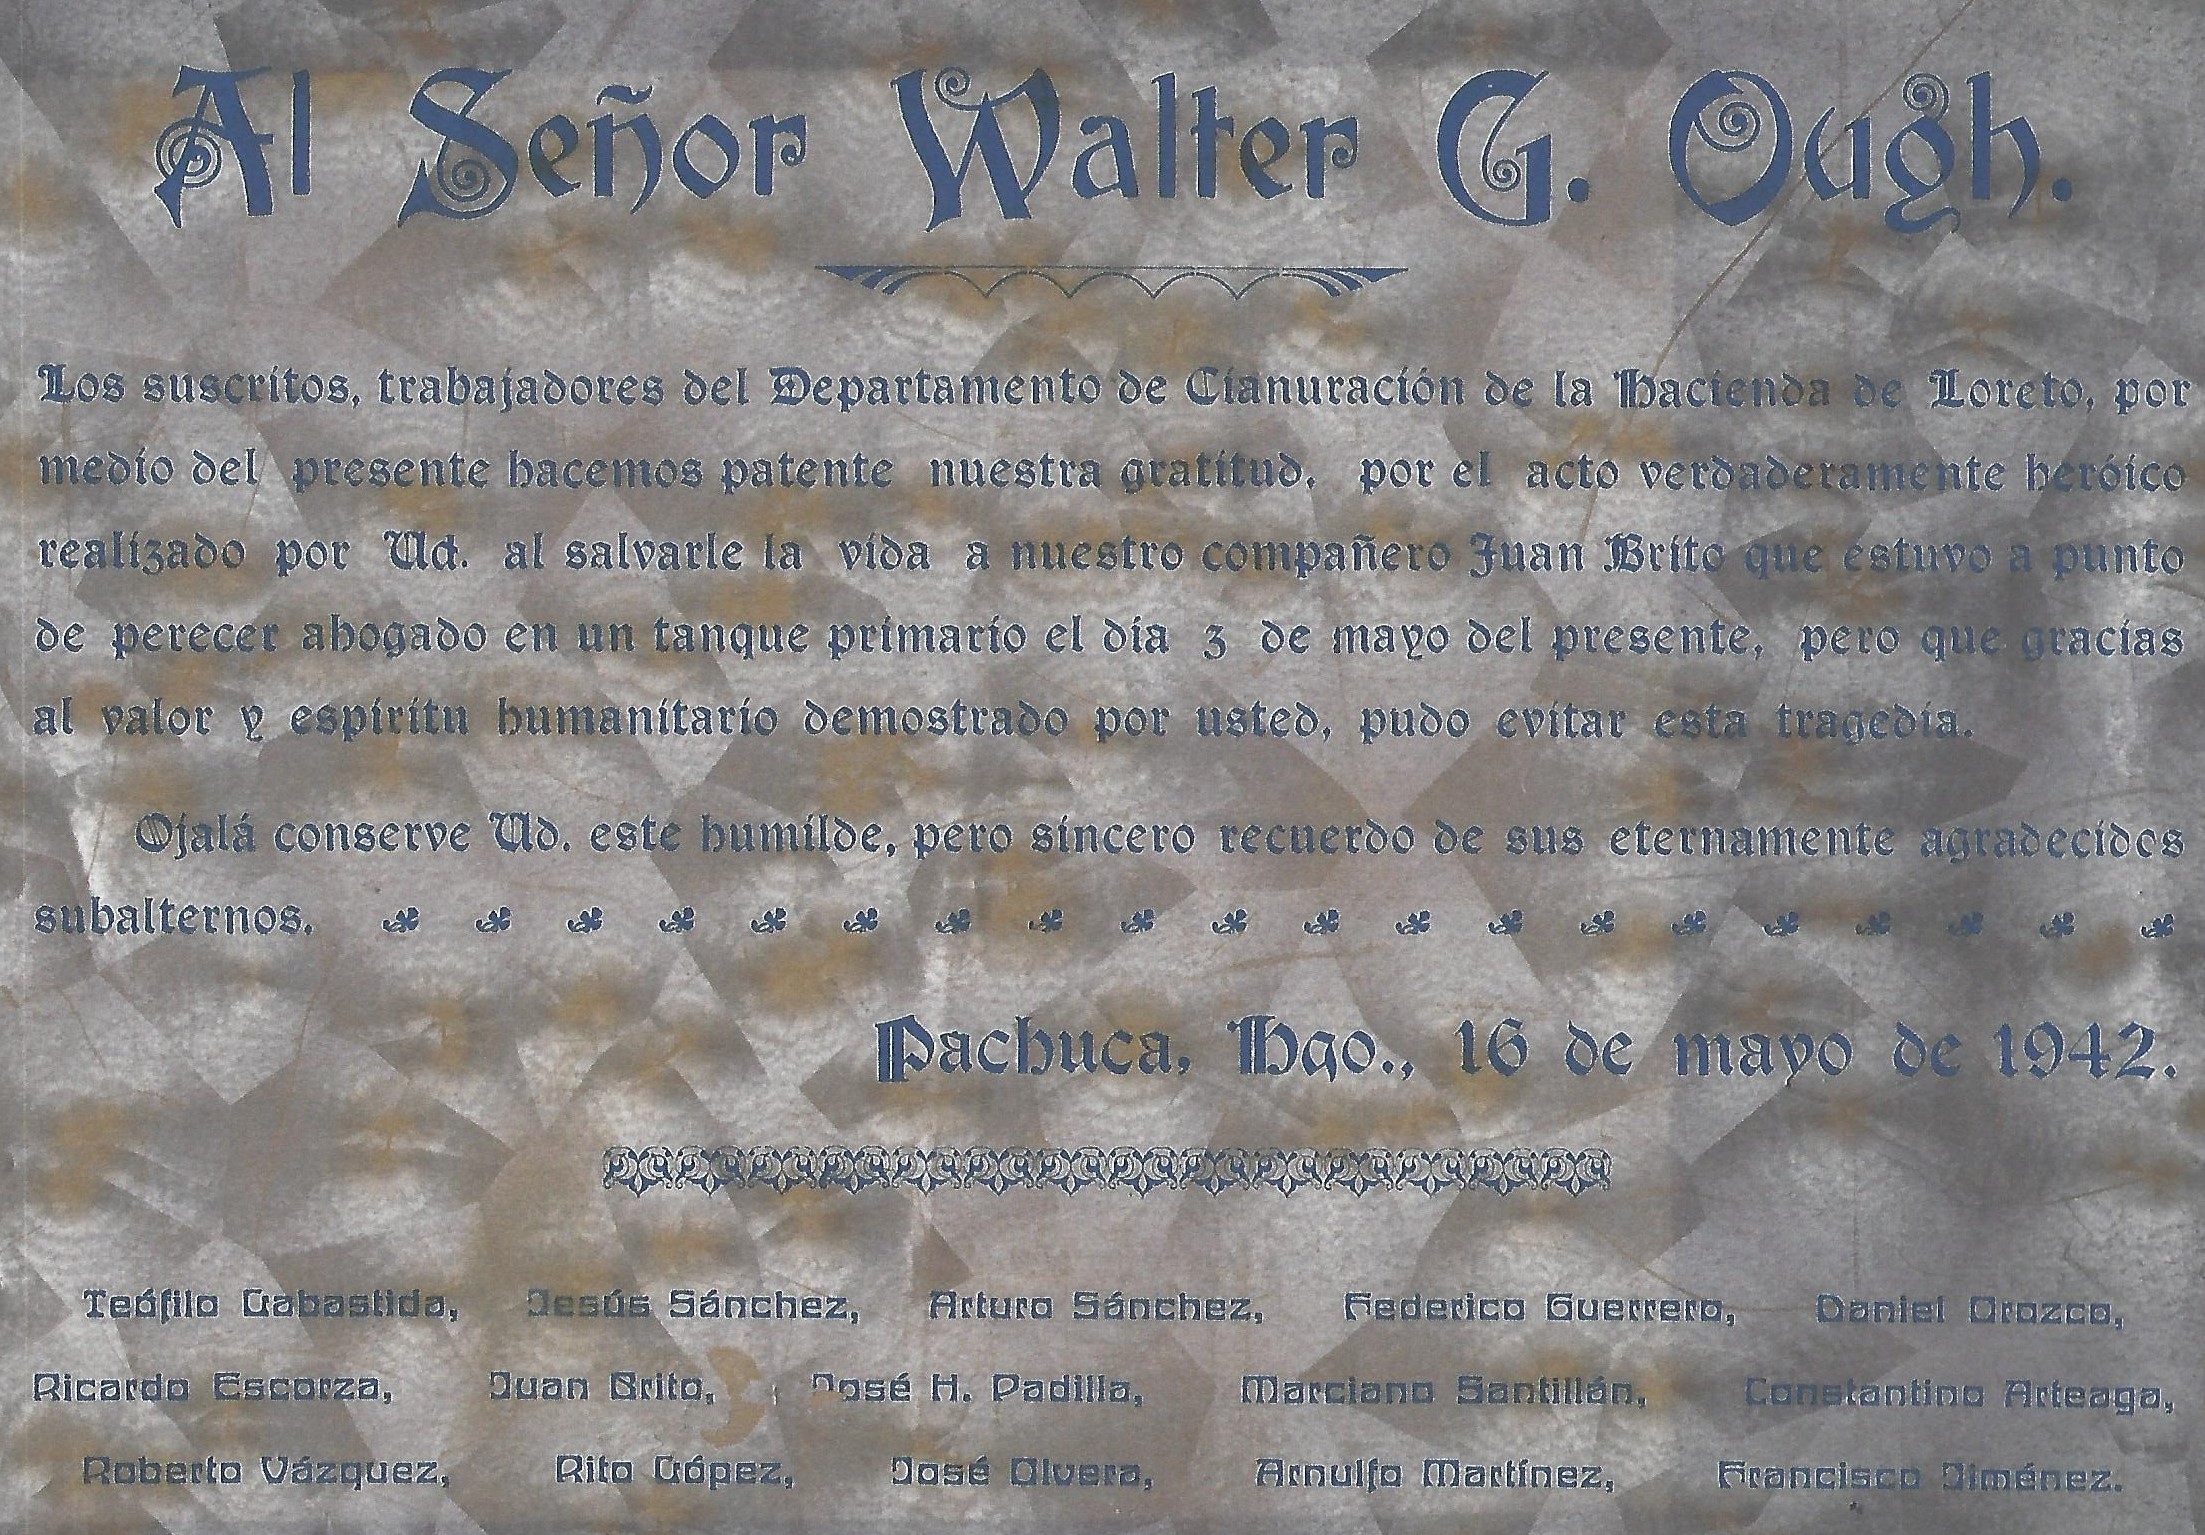 Al Señor Walter G. Ough.
Los suscritos, trabajadores del Departamento de Cianuración de la Hacienda de Loreto, por
medio del presente hacemos patente nuestra gratitud, por el acto verdaderamente heróico
realizado por Ud. al salvarle la vida a nuestro compañero Juan Brito que estuvo a punto
de perecer ahogado en un tanque primario el día 3 de mayo del presente, pero que gracias
al valor y espíritu humanitario demostrado por usted, pudo evitar esta tragedia.
Ojalá conserve Ud. este humilde, pero sincero recuerdo de sus eternamente agradecidos
subalternos.
Pachuca, Hgo., 16 de mayo de 1942.
Teófilo Labastida, Jesús Sánchez, Arturo Sánchez, Federico Guerrero, Daniel Orozco,
Ricardo Escorza, Juan Brito, José H. Padilla, Marciano Santillán, Constantino Arteaga,
Roberto Vázquez, Rito López, José Olvera, Arnulfo Martínez, Francisco Jiménez.